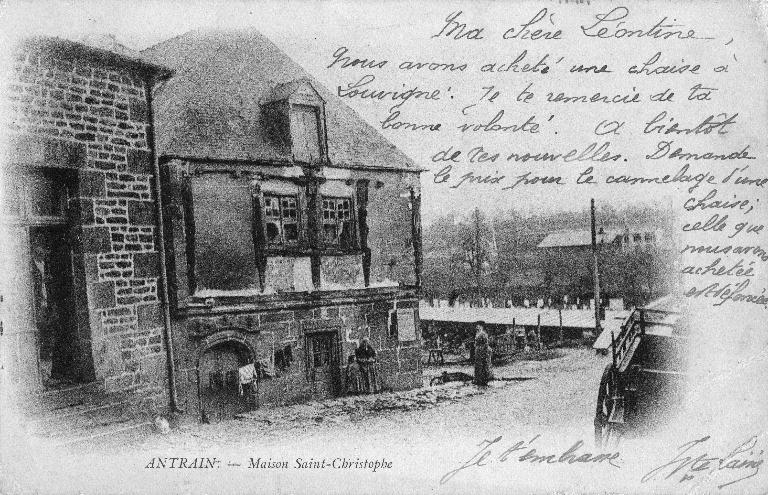 Ma chère Léontine,
Nous avons acheté une chaise à
Louvigné. Je te remercie de ta
bonne volonté. A bientôt
de tes nouvelles. Demande
le prix pour le cannelage d'une
chaise;
celle que
nous avons
achetée
est défoncée
ANTRAIN. — Maison Saint-Christophe
Je t'embrasse